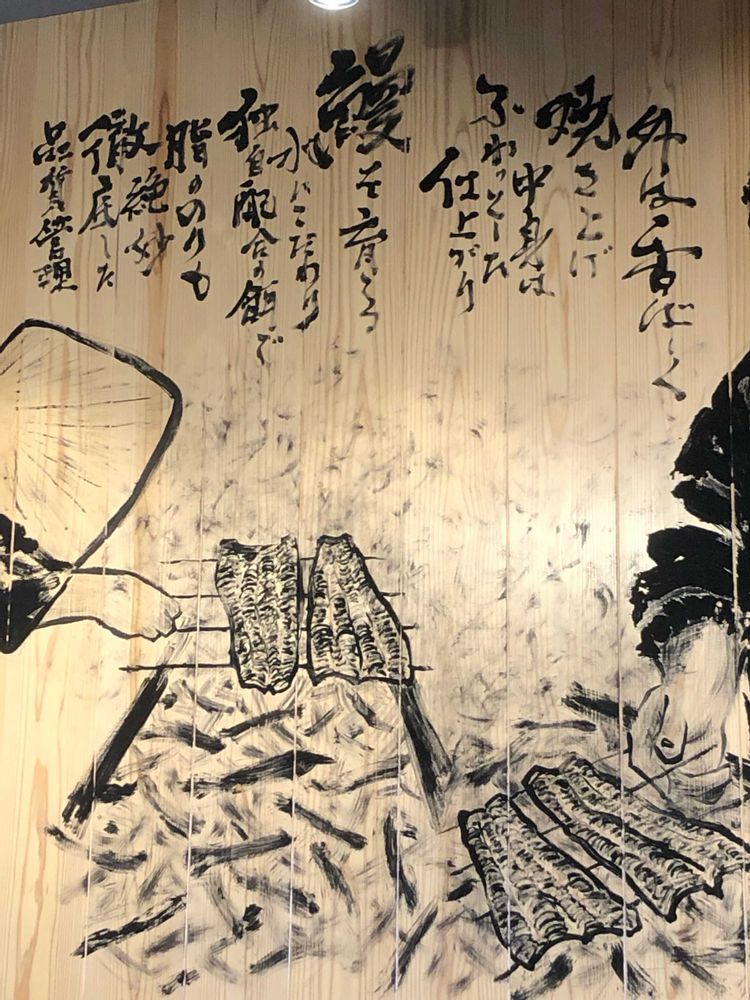 外は香ばしく
焼き上げ
中身は
ふわっとした
仕上がり
鰻を育てる
水にこだわり
独自配合の餌で
脂ののりも
絶妙
徹底した
品質管理